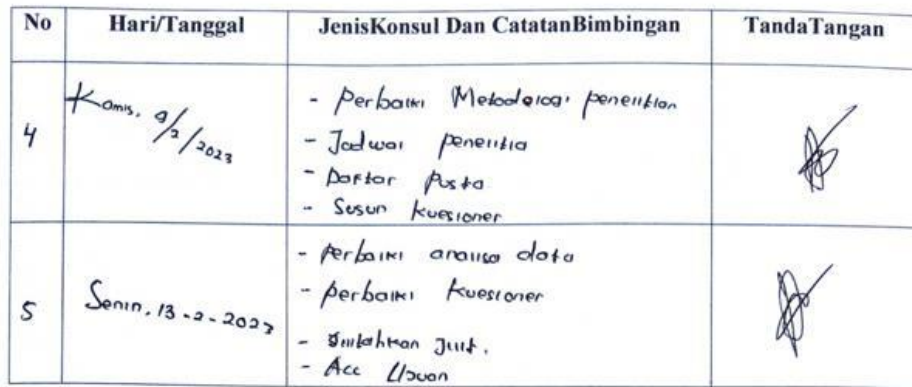 No Hari/Tanggal JenisKonsul Dan CatatanBimbingan TandaTangan
4 Kamis, 9/2/2023
- Perbaiki Metodologi penelitian
- Jadwal penelitia
- Daftar Pusta
- Susun Kuesioner
5 Senin, 13-2-2023
- Perbaiki analisa data
- perbaiki Kuesioner
-
- Acc Ujuan